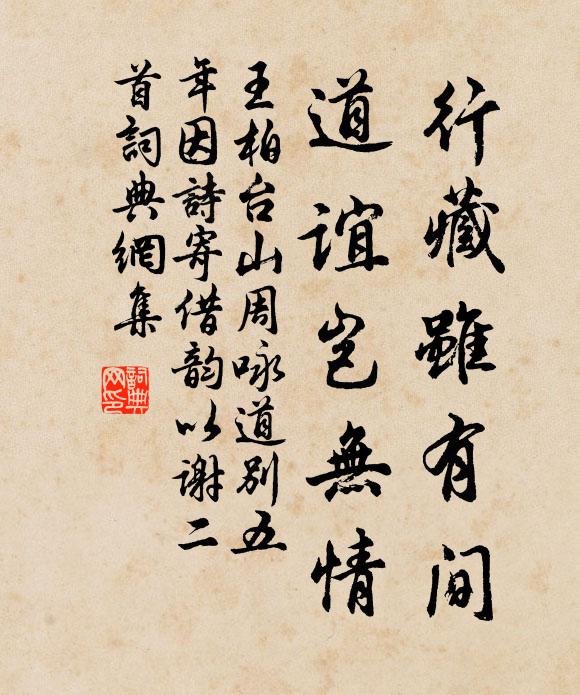 行藏雖有間
道誼豈無情
王柏台山周咏道別五
年因詩寄借韵以谢二
首詞典網集
詞典网印